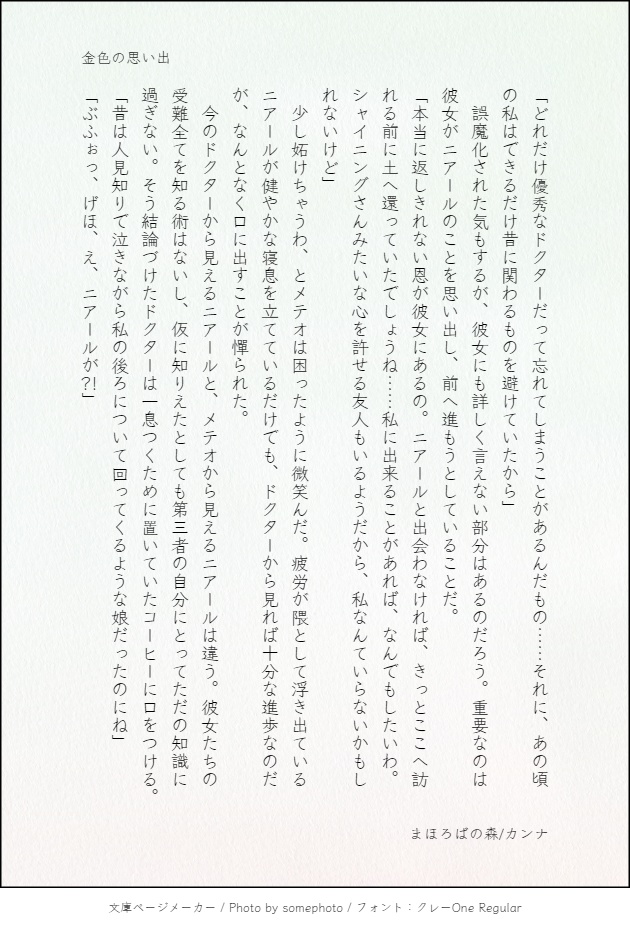 金色の思い出
「どれだけ優秀なドクターだって忘れてしまうことがあるんだもの……それに、あの頃
の私はできるだけ昔に関わるものを避けていたから」
　誤魔化された気もするが、彼女にも詳しく言えない部分はあるのだろう。重要なのは
彼女がニアールのことを思い出し、前へ進もうとしていることだ。
「本当に返しきれない恩が彼女にあるの。ニアールと出会わなければ、きっとここへ訪
れる前に土へ還っていたでしょうね……私に出来ることがあれば、なんでもしたいわ。
シャイニングさんみたいな心を許せる友人もいるようだから、私なんていらないかもし
れないけど」
　少し妬けちゃうわ、とメテオは困ったように微笑んだ。疲労が隈として浮き出ている
ニアールが健やかな寝息を立てているだけでも、ドクターから見れば十分な進歩なのだ
が、なんとなく口に出すことが憚られた。
　今のドクターから見えるニアールと、メテオから見えるニアールは違う。彼女たちの
受難全てを知る術はないし、仮に知りえたとしても第三者の自分にとってただの知識に
過ぎない。そう結論づけたドクターは一息つくために置いていたコーヒーに口をつける。
「昔は人見知りで泣きながら私の後ろについて回ってくるような娘だったのにね」
「ぶふぉっ、げほ、え、ニアールが?!」
まほろばの森/カンナ
文庫ページメーカー / Photo by somephoto / フォント：クレーOne Regular